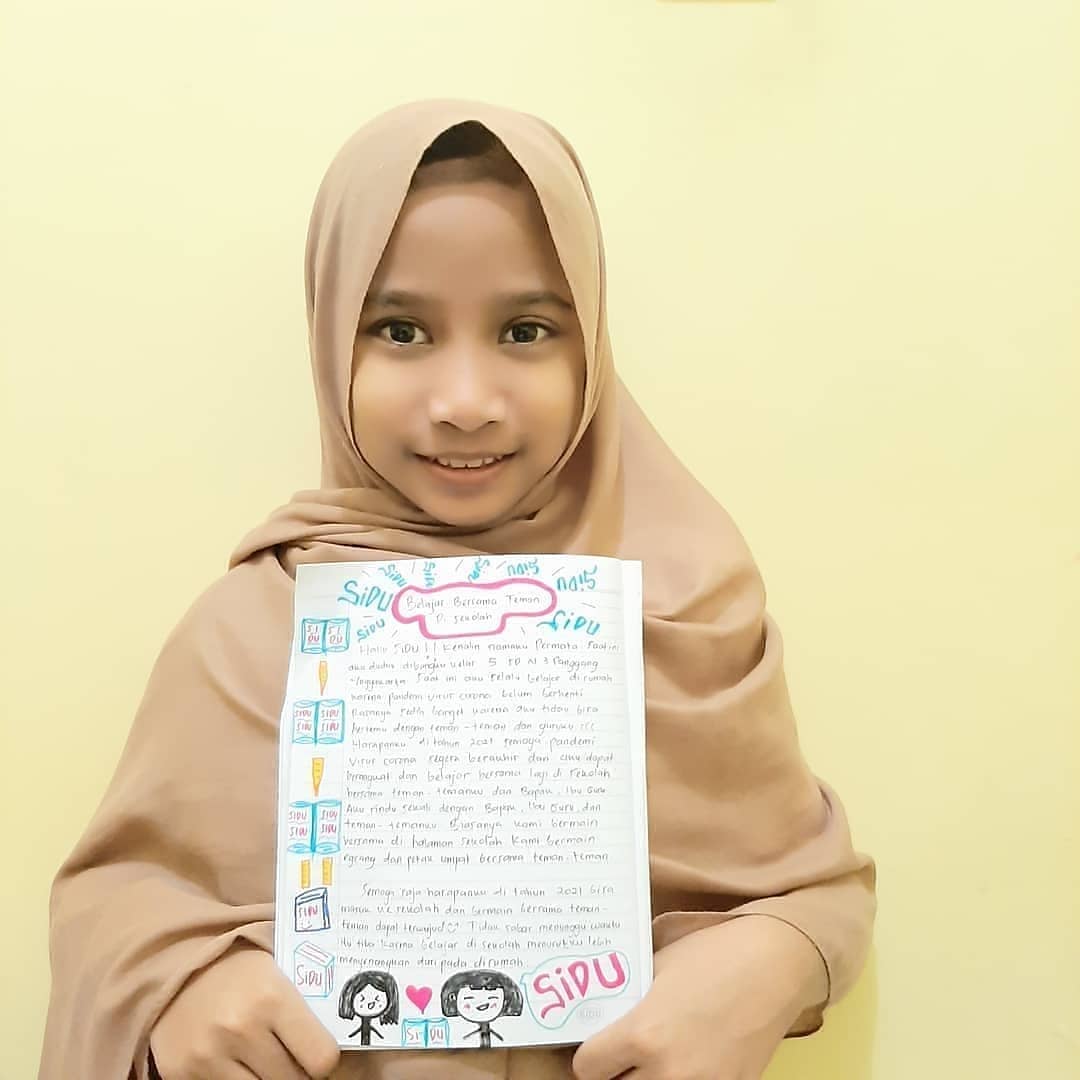 SiDU SiDU SiDU SiDU SiDU SiDU
SiDU SiDU
Belajar Bersama Teman
Di Sekolah
Hallo SiDU!! Kenalin namaku Permata. Saat ini
aku duduk dibangku kelas 5 SD N 3 Panggang
Yogyakarta. Saat ini aku selalu belajar di rumah
karna pandemi virus corona belum berhenti
Rasanya sedih banget karena aku tidak bisa
bertemu dengan teman-teman dan guruku
Harapanku di tahun 2021 semoga pandemi
virus corona segera berakhir dan aku dapat
berangkat dan belajar bersama lagi di sekolah
bersama teman-temanku dan Bapak, Ibu Guru.
Aku rindu sekali dengan Bapak, Ibu Guru, dan
teman-temanku. Biasanya kami bermain
bersama di halaman sekolah. Kami bermain
egrang dan petak umpet bersama teman-teman
Semoga saja harapanku di tahun 2021 bisa
masuk ke sekolah dan bermain bersama teman-
teman dapat terwujud Tidak sabar menunggu waktu
itu tiba karna belajar di sekolah menurutku lebih
menyenangkan daripada di rumah.
SI DU SI DU
SIDU SIDU
SIDU SIDU
SIDU SIDU
SIDU SIDU
SIDU
SiDU
Si DU
SiDU